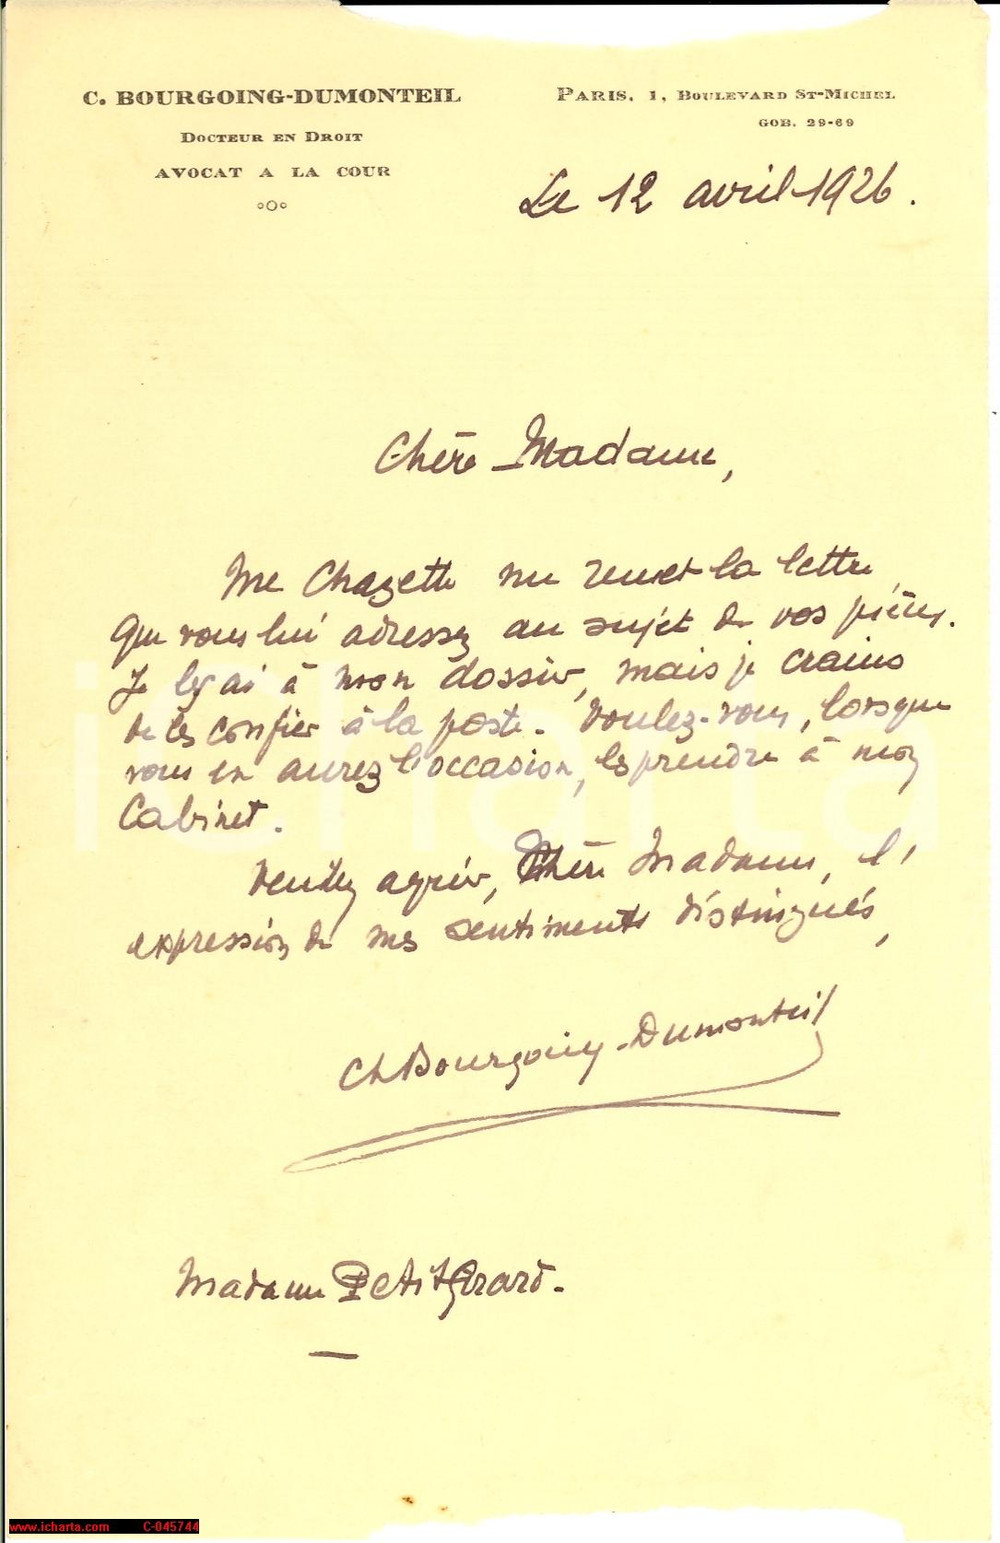 C. BOURGOING-DUMONTEIL
DOCTEUR EN DROIT
AVOCAT A LA COUR
PARIS, 1, BOULEVARD ST-MICHEL
GOB. 29-69
Le 12 avril 1926.
Chère Madame,
Me Chazette me remet la lettre
que vous lui adressez au sujet de vos pièces.
Je les ai à mon dossier, mais je crains
de les confier à la poste. Voulez-vous, lorsque
vous en aurez l'occasion, les prendre à mon
Cabinet.
Veuillez agréer, Chère Madame, l'
expression de mes sentiments distingués,
Ch Bourgoing-Dumonteil
Madame PetitGérard.
icharta
www.icharta.com C-045744